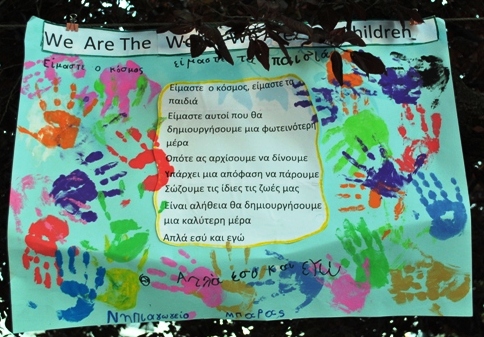 We Are The We Children
είμαστε ο κόσμος είμαστε τα παιδιά
Είμαστε ο κόσμος, είμαστε τα
παιδιά
Είμαστε αυτοί που θα
δημιουργήσουμε μια φωτεινότερη
μέρα
Οπότε ας αρχίσουμε να δίνουμε
Υπάρχει μια απόφαση να πάρουμε
Σώζουμε τις ίδιες τις ζωές μας
Είναι αλήθεια θα δημιουργήσουμε
μια καλύτερη μέρα
Απλά εσύ και εγώ
Απλά εσυ και εγω
Νηπιαγωγείο μπαρας